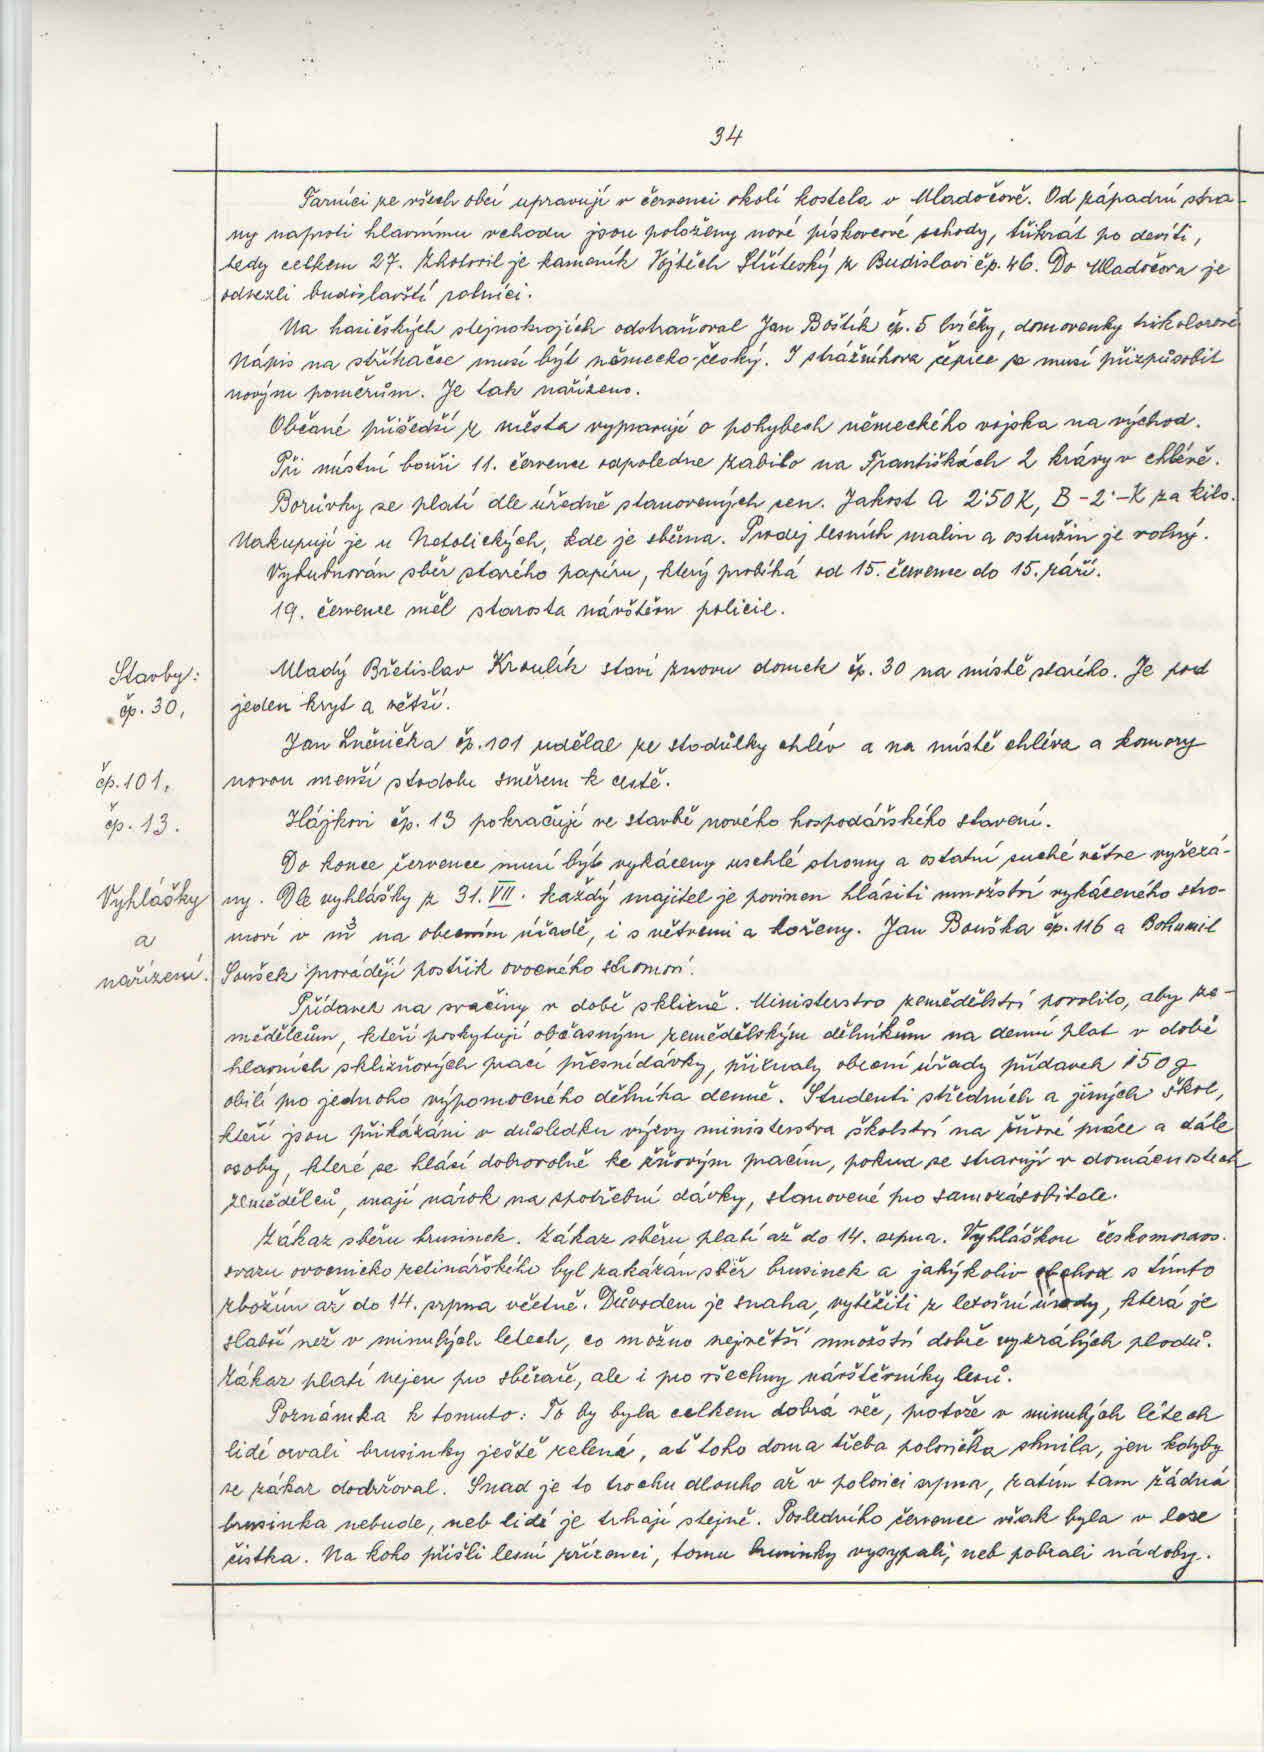 34
Farníci ze všech obcí upravují v červenci okolí kostela v Mladočově. Od západní stra-
ny naproti hlavnímu vchodu jsou položeny nové pískovcové schody, třikrát po devíti,
tedy celkem 27. Zhotovil je kameník Vojtěch Stříteský z Budislavi čp. 46. Do Mladočova je
odvezli budislavští rolníci.
Na hasičských stejnokrojích odstraňoval Jan Boštík čp. 5 lvíčky, domovenky trikolorové
Nápis na stříkačce musí být německo-český. I strážníkova čepice se musí přizpůsobit
novým poměrům. Je tak nařízeno.
Občané přišedší z města vypravují o pohybech německého vojska na východ.
Při místní bouři 11. července odpoledne zabilo na Františkách 2 krávy v chlévě.
Borůvky se platí dle úředně stanovených cen. Jakost A 2·50 K, B - 2·- K za kilo.
Nakupují je u Netolických, kde je sběrna. Prodej lesních malin a ostružin je volný.
Vybubnován sběr starého papíru, který probíhá od 15. července do 15. září.
19. července měl starosta návštěvu policie.
Stavby:
čp. 30,
Mladý Břetislav Kroulík staví znovu domek čp. 30 na místě starého. Je pod
jeden kryt a větší.
Jan Lněnička čp. 101 udělal ze stodůlky chlév a na místě chléva a komory
čp. 101,
novou menší stodolu směrem k cestě.
čp. 13.
Hájkovi čp. 13 pokračují ve stavbě nového hospodářského stavení.
Do konce července musí býti vykáceny uschlé stromy a ostatní suché větve vyřezá-
Vyhlášky
a
nařízení.
ny. Dle vyhlášky z 31. VII. každý majitel je povinen hlásiti množství vykáceného stro-
moví v m3 na obecním úřadě, i s větvemi a kořeny. Jan Bouška čp. 116 a Bohumil
Soušek provádějí postřik ovocného stromoví.
Přídavek na svačiny v době sklizně. Ministerstvo zemědělství povolilo, aby ze-
mědělcům, kteří poskytují občasným zemědělským dělníkům na denní plat v době
hlavních sklizňových prací přesnídávky, přiznaly obecní úřady přídavek 150 g
obilí pro jednoho výpomocného dělníka denně. Studenti středních a jiných škol,
kteří jsou přikázáni v důsledku výzvy ministerstva školství na žňové práce a dále
osoby, které se hlásí dobrovolně ke žňovým pracím, pokud se stravují v domácnostech
zemědělců, mají nárok na spotřební dávky, stanovené pro samozásobitele.
Zákaz sběru brusinek. Zákaz sběru platí až do 14. srpna. Vyhláškou českomorav.
svazu ovocnicko zelinářského byl zakázán sběr brusinek a jakýkoliv obchod s tímto
zbožím až do 14. srpna včetně. Důvodem je snaha, vytěžiti z letošní úrody, která je
slabší než v minulých letech, co možno největší množství dobře vyzrálých plodů.
Zákaz platí nejen pro sběrače, ale i pro všechny návštěvníky lesů.
Poznámka k tomuto: To by byla celkem dobrá věc, protože v minulých létech
lidé orvali brusinky ještě zelené, ať toho doma třeba polovička shnila, jen kdyby
se zákaz dodržoval. Snad je to trochu dlouho až v polovici srpna, zatím tam žádná
brusinka nebude, neb lidé je trhají stejně. Posledního července však byla v lese
čistka. Na koho přišli lesní zřízenci, tomu brusinky vysypali, neb pobrali nádoby.